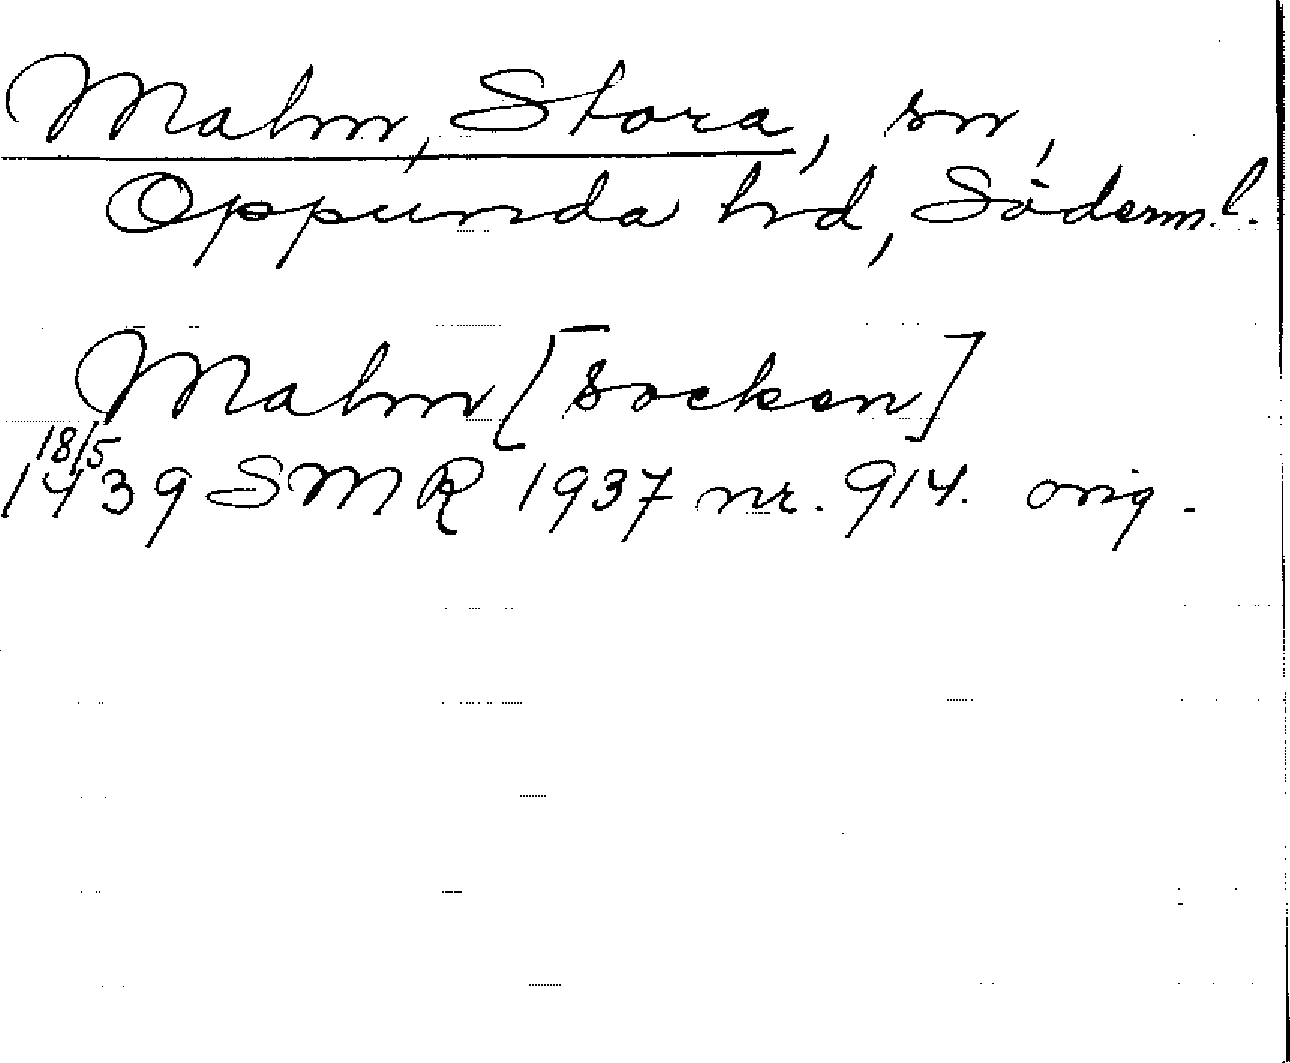 Malm, Stora, sn,
Oppunda hd, Söderm.l.
Malm [socken]
18/5
1439 SMR 1937 nr. 914. orig.